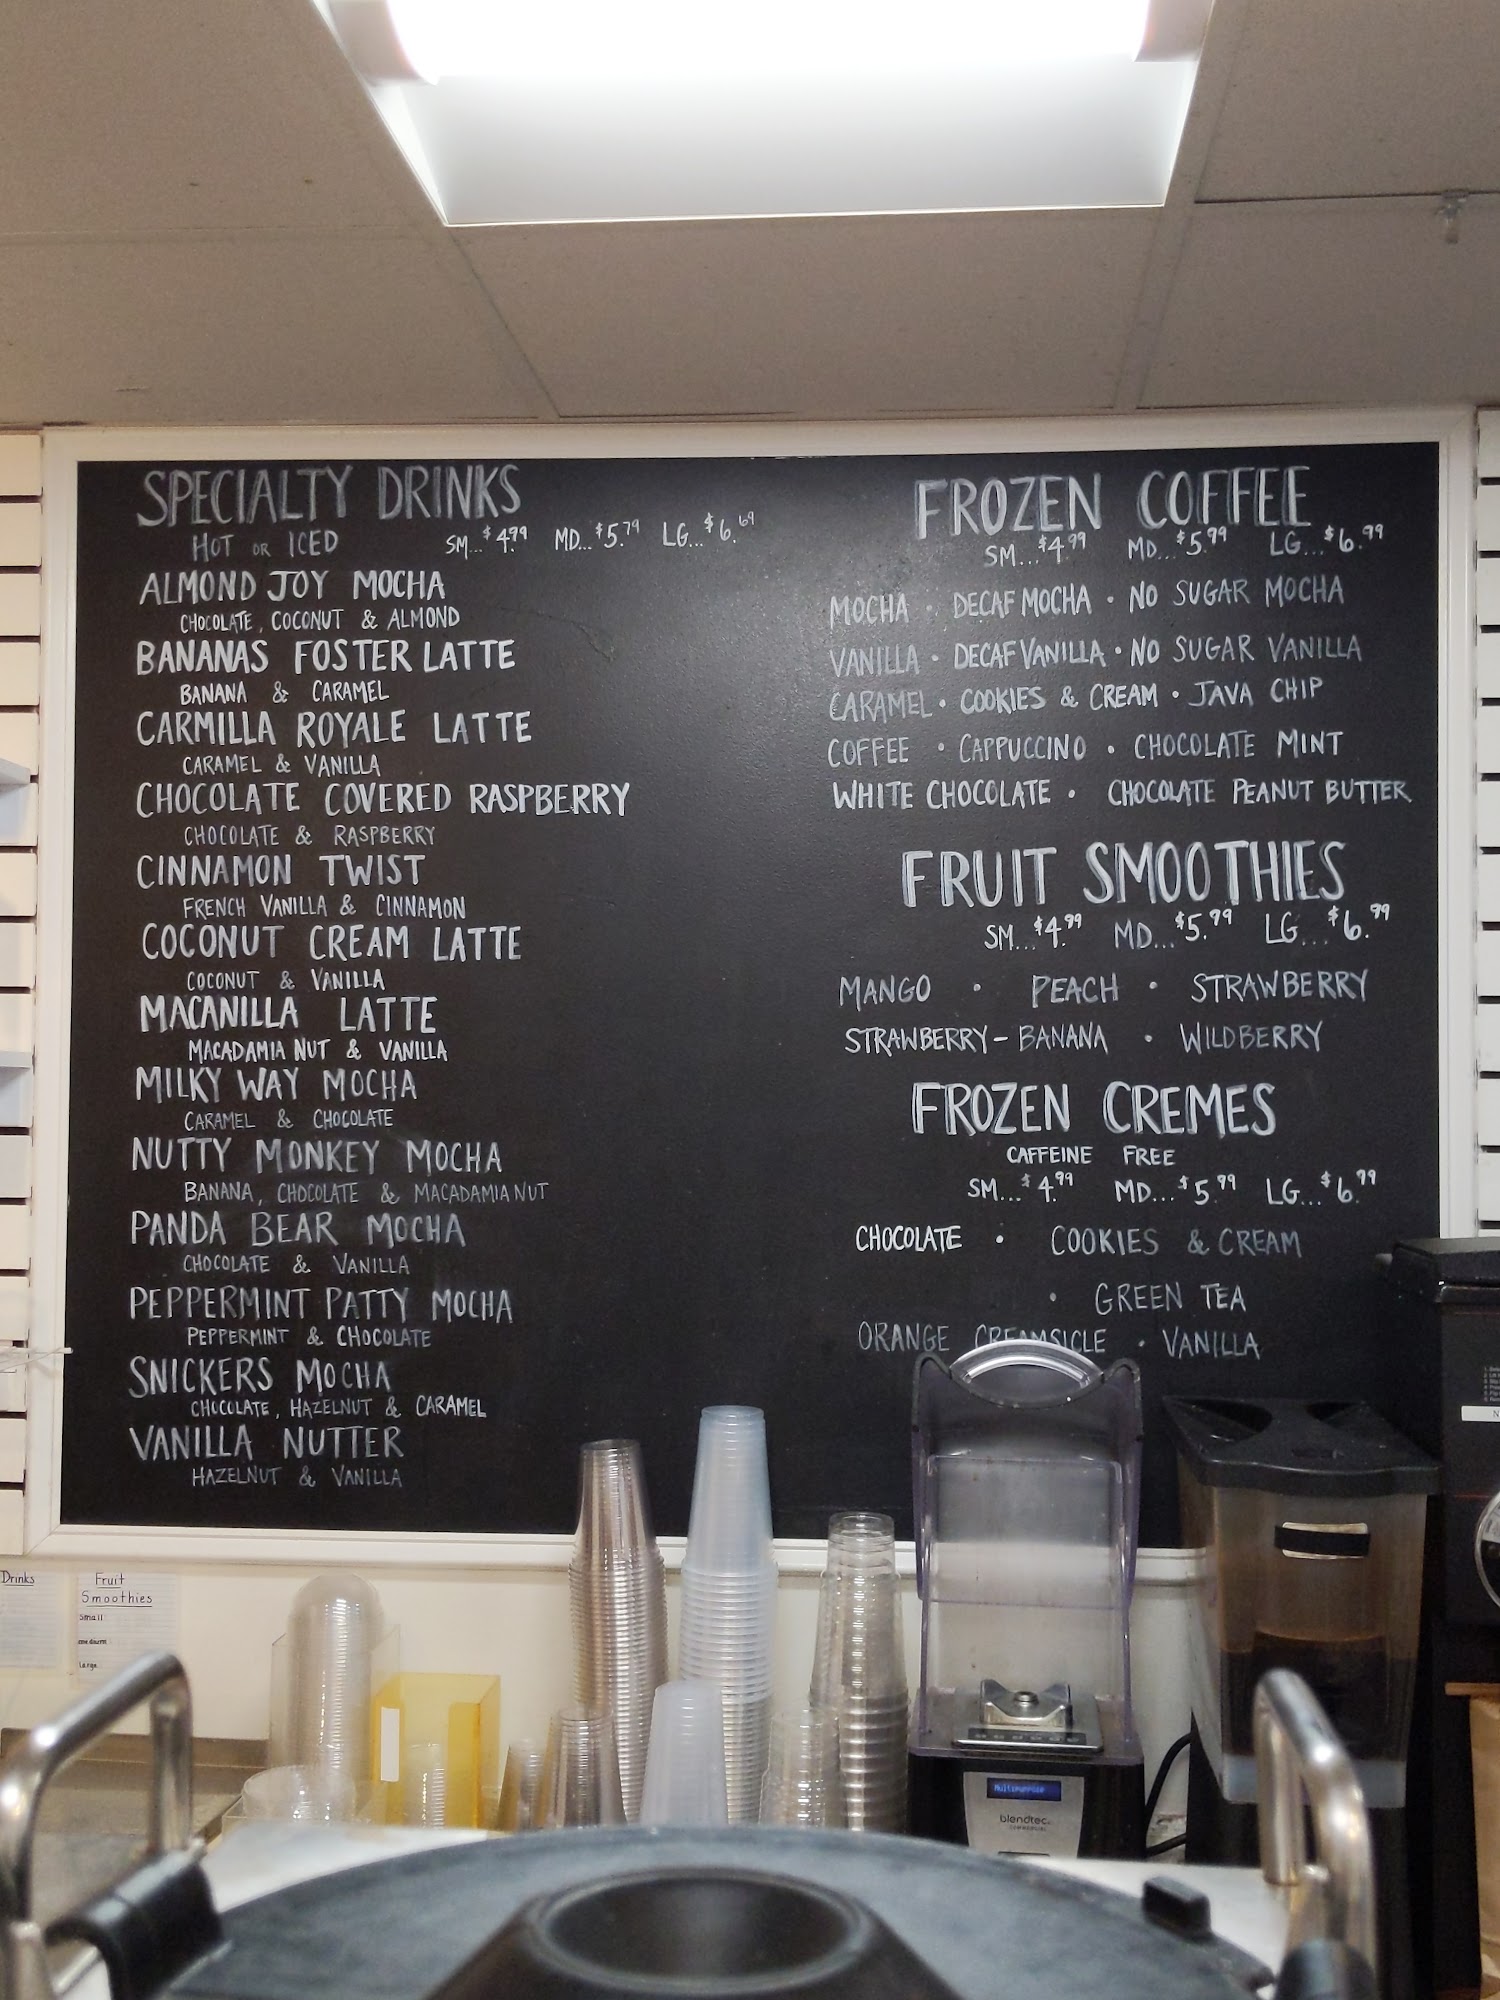 SPECIALTY DRINKS
HOT OR ICED SM...$4.99 MD...$5.79 LG...$6.69
ALMOND JOY MOCHA
CHOCOLATE, COCONUT & ALMOND
BANANAS FOSTER LATTE
BANANA & CARAMEL
CARMILLA ROYALE LATTE
CARAMEL & VANILLA
CHOCOLATE COVERED RASPBERRY
CHOCOLATE & RASPBERRY
CINNAMON TWIST
FRENCH VANILLA & CINNAMON
COCONUT CREAM LATTE
COCONUT & VANILLA
MACANILLA LATTE
MACADAMIA NUT & VANILLA
MILKY WAY MOCHA
CARAMEL & CHOCOLATE
NUTTY MONKEY MOCHA
BANANA, CHOCOLATE & MACADAMIA NUT
PANDA BEAR MOCHA
CHOCOLATE & VANILLA
PEPPERMINT PATTY MOCHA
PEPPERMINT & CHOCOLATE
SNICKERS MOCHA
CHOCOLATE, HAZELNUT & CARAMEL
VANILLA NUTTER
HAZELNUT & VANILLA
FROZEN COFFEE
SM...$4.99 MD...$5.99 LG...$6.99
MOCHA • DECAF MOCHA • NO SUGAR MOCHA
VANILLA • DECAF VANILLA • NO SUGAR VANILLA
CARAMEL • COOKIES & CREAM • JAVA CHIP
COFFEE • CAPPUCCINO • CHOCOLATE MINT
WHITE CHOCOLATE • CHOCOLATE PEANUT BUTTER
FRUIT SMOOTHIES
SM...$4.99 MD...$5.99 LG...$6.99
MANGO • PEACH • STRAWBERRY
STRAWBERRY-BANANA • WILDBERRY
FROZEN CREMES
CAFFEINE FREE
SM...$4.99 MD...$5.99 LG...$6.99
CHOCOLATE • COOKIES & CREAM
• GREEN TEA
ORANGE CREAMSICLE • VANILLA
Drinks
Fruit
Smoothies
small
medium
large
Multipurpose
blendtec
COMMERCIAL